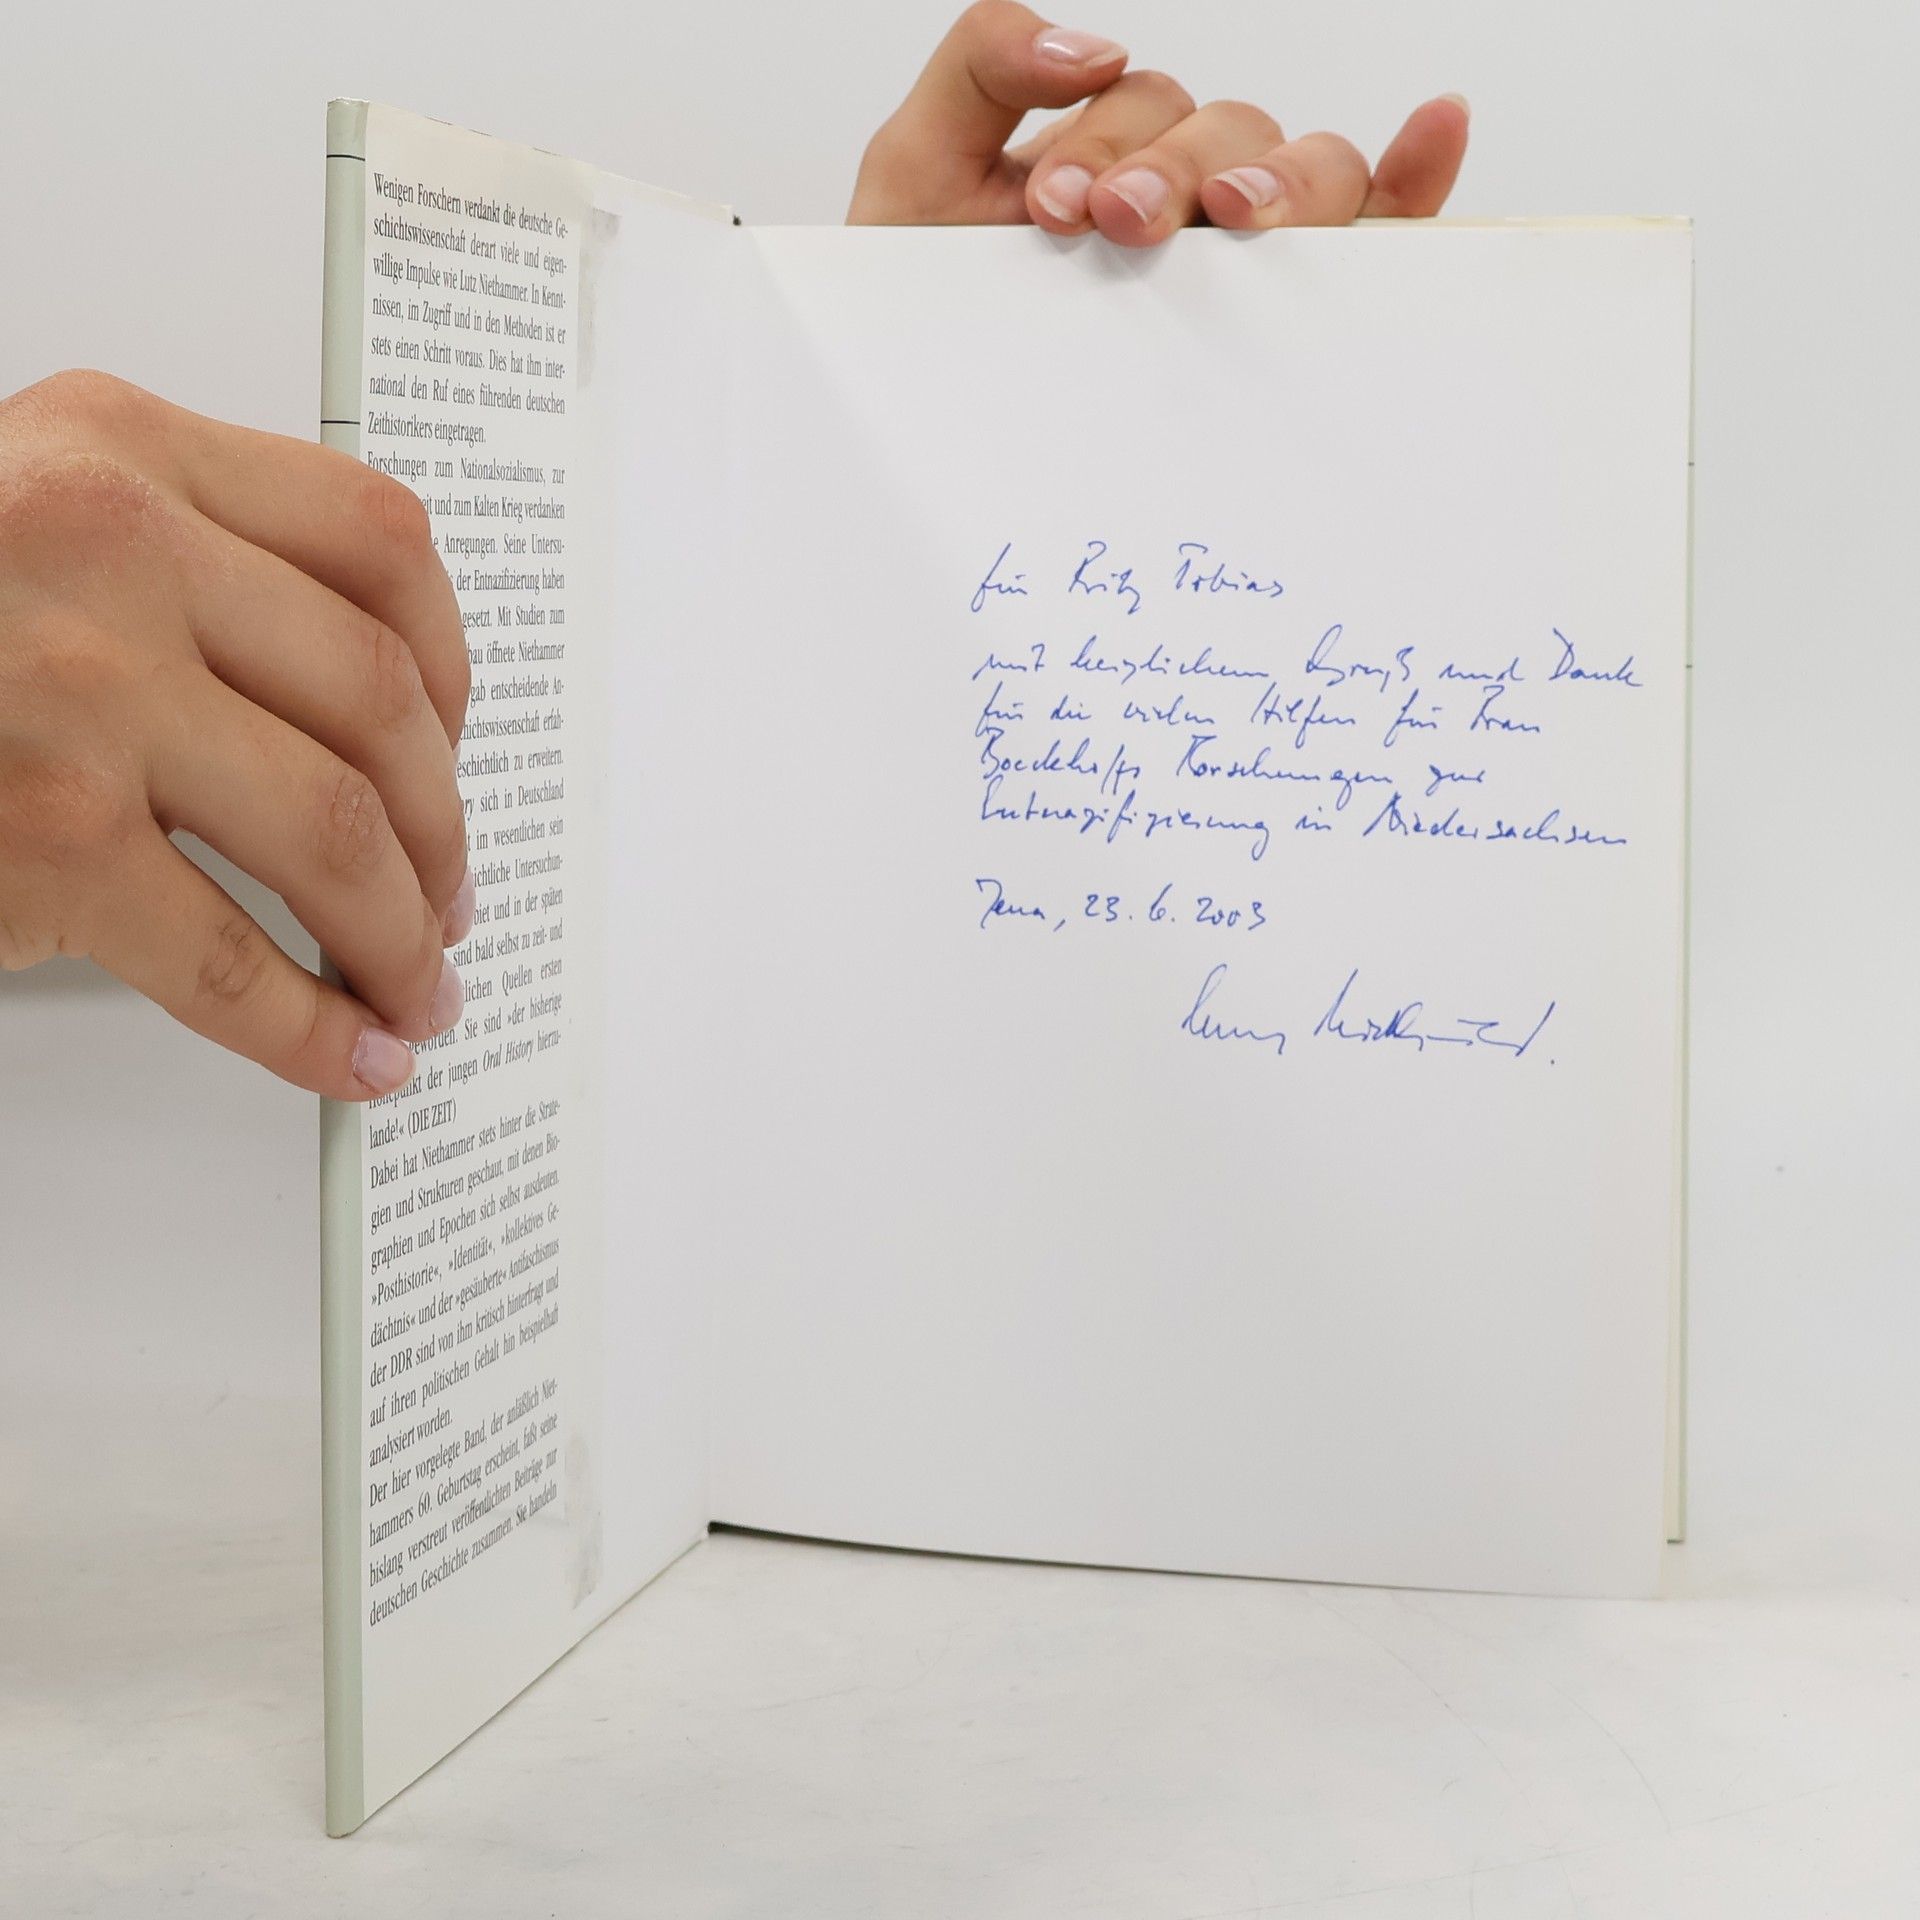 Wenigen Forschern verdankt die deutsche Ge-
schichtswissenschaft derart viele und eigen-
willige Impulse wie Lutz Niethammer. In Kennt-
nissen, im Zugriff und in den Methoden ist er
stets einen Schritt voraus. Dies hat ihm inter-
national den Ruf eines führenden deutschen
Zeithistorikers eingetragen.
Forschungen zum Nationalsozialismus, zur
eit und zum Kalten Krieg verdanken
e Anregungen. Seine Untersu-
der Entnazifizierung haben
gesetzt. Mit Studien zum
bau öffnete Niethammer
gab entscheidende An-
chichtswissenschaft erfah-
eschichtlich zu erweitern.
ry sich in Deutschland
t im wesentlichen sein
ichtliche Untersuchun-
biet und in der späten
sind bald selbst zu zeit- und
tlichen Quellen ersten
geworden. Sie sind »der bisherige
Höhepunkt der jungen Oral History hierzu-
lande!« (DIE ZEIT)
Dabei hat Niethammer stets hinter die Strate-
gien und Strukturen geschaut, mit denen Bio-
graphien und Epochen sich selbst ausdeuten.
»Posthistorie«, »Identität«, »kollektives Ge-
dächtnis« und der »gesäuberte« Antifaschismus
der DDR sind von ihm kritisch hinterfragt und
auf ihren politischen Gehalt hin beispielhaft
analysiert worden.
Der hier vorgelegte Band, der anläßlich Niet-
hammers 60. Geburtstag erscheint, faßt seine
bislang verstreut veröffentlichten Beiträge zur
deutschen Geschichte zusammen. Sie handeln
für Fritz Tobias
mit herzlichem Gruß und Dank
für die vielen Hilfen für Frau
Boeckhoffs Forschungen zur
Entnazifizierung in Niedersachsen
Jena, 23. 6. 2003